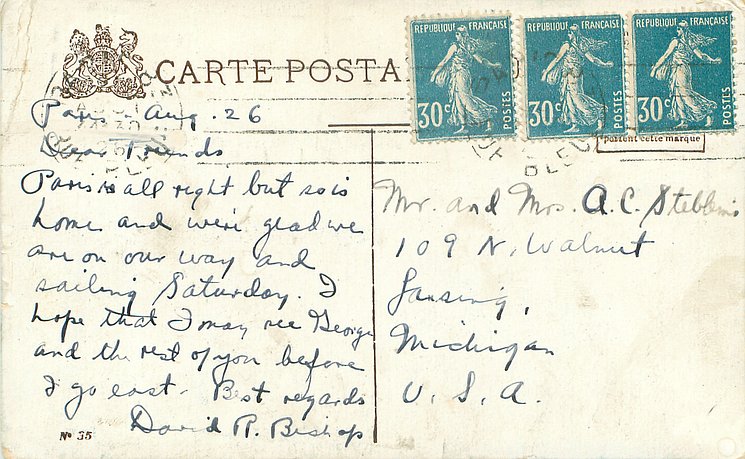 CARTE POSTA
REPUBLIQUE FRANÇAISE
30c
POSTES
REPUBLIQUE FRANÇAISE
30c
POSTES
REPUBLIQUE FRANÇAISE
30c
POSTES
portent cette marque
Paris - Aug. 26
Dear Friends
Paris is all right but so is
home and we're glad we
are on our way and
sailing Saturday. I
hope that I may see George
and the rest of you before
I go east. Best regards
David R. Bishop
No 35
Mr. and Mrs. A. C. Stebbins
109 N. Walnut
Lansing,
Michigan
U. S. A.